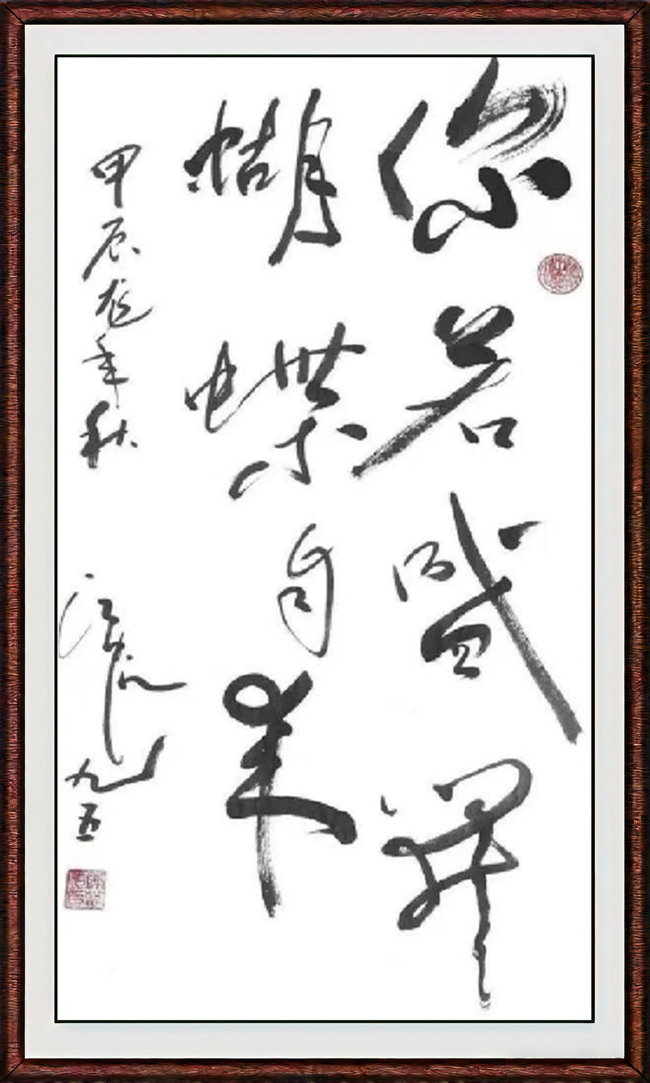 你若盛開
蝴蝶自来
甲辰龙年秋
九五